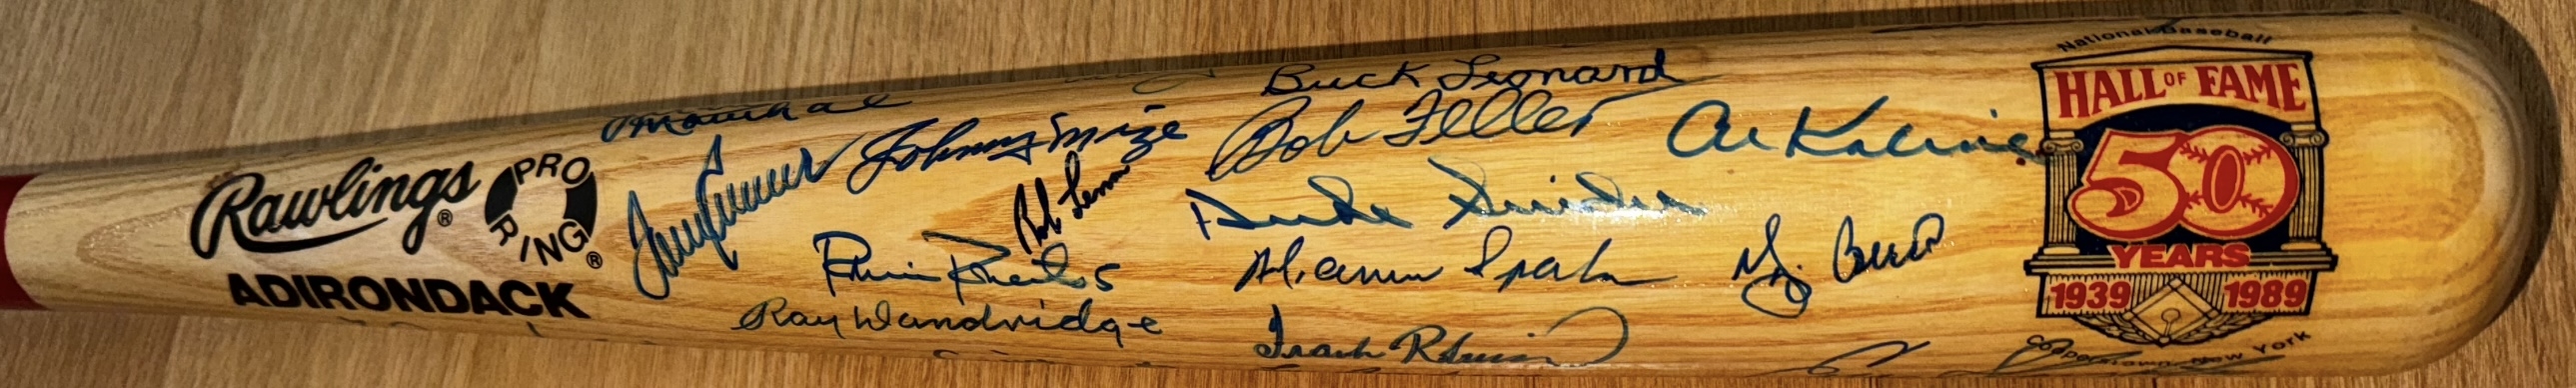 Rawlings®
PRO
RING®
ADIRONDACK
Marichal
Johnny Mize
Bob Lemon
Robin Roberts
Ray Dandridge
Buck Leonard
Bob Feller
Duke Snider
Warren Spahn
Frank Robinson
Al Kaline
Yogi Berra
National Baseball
HALL OF FAME
50
YEARS
1939 1989
Cooperstown, New York